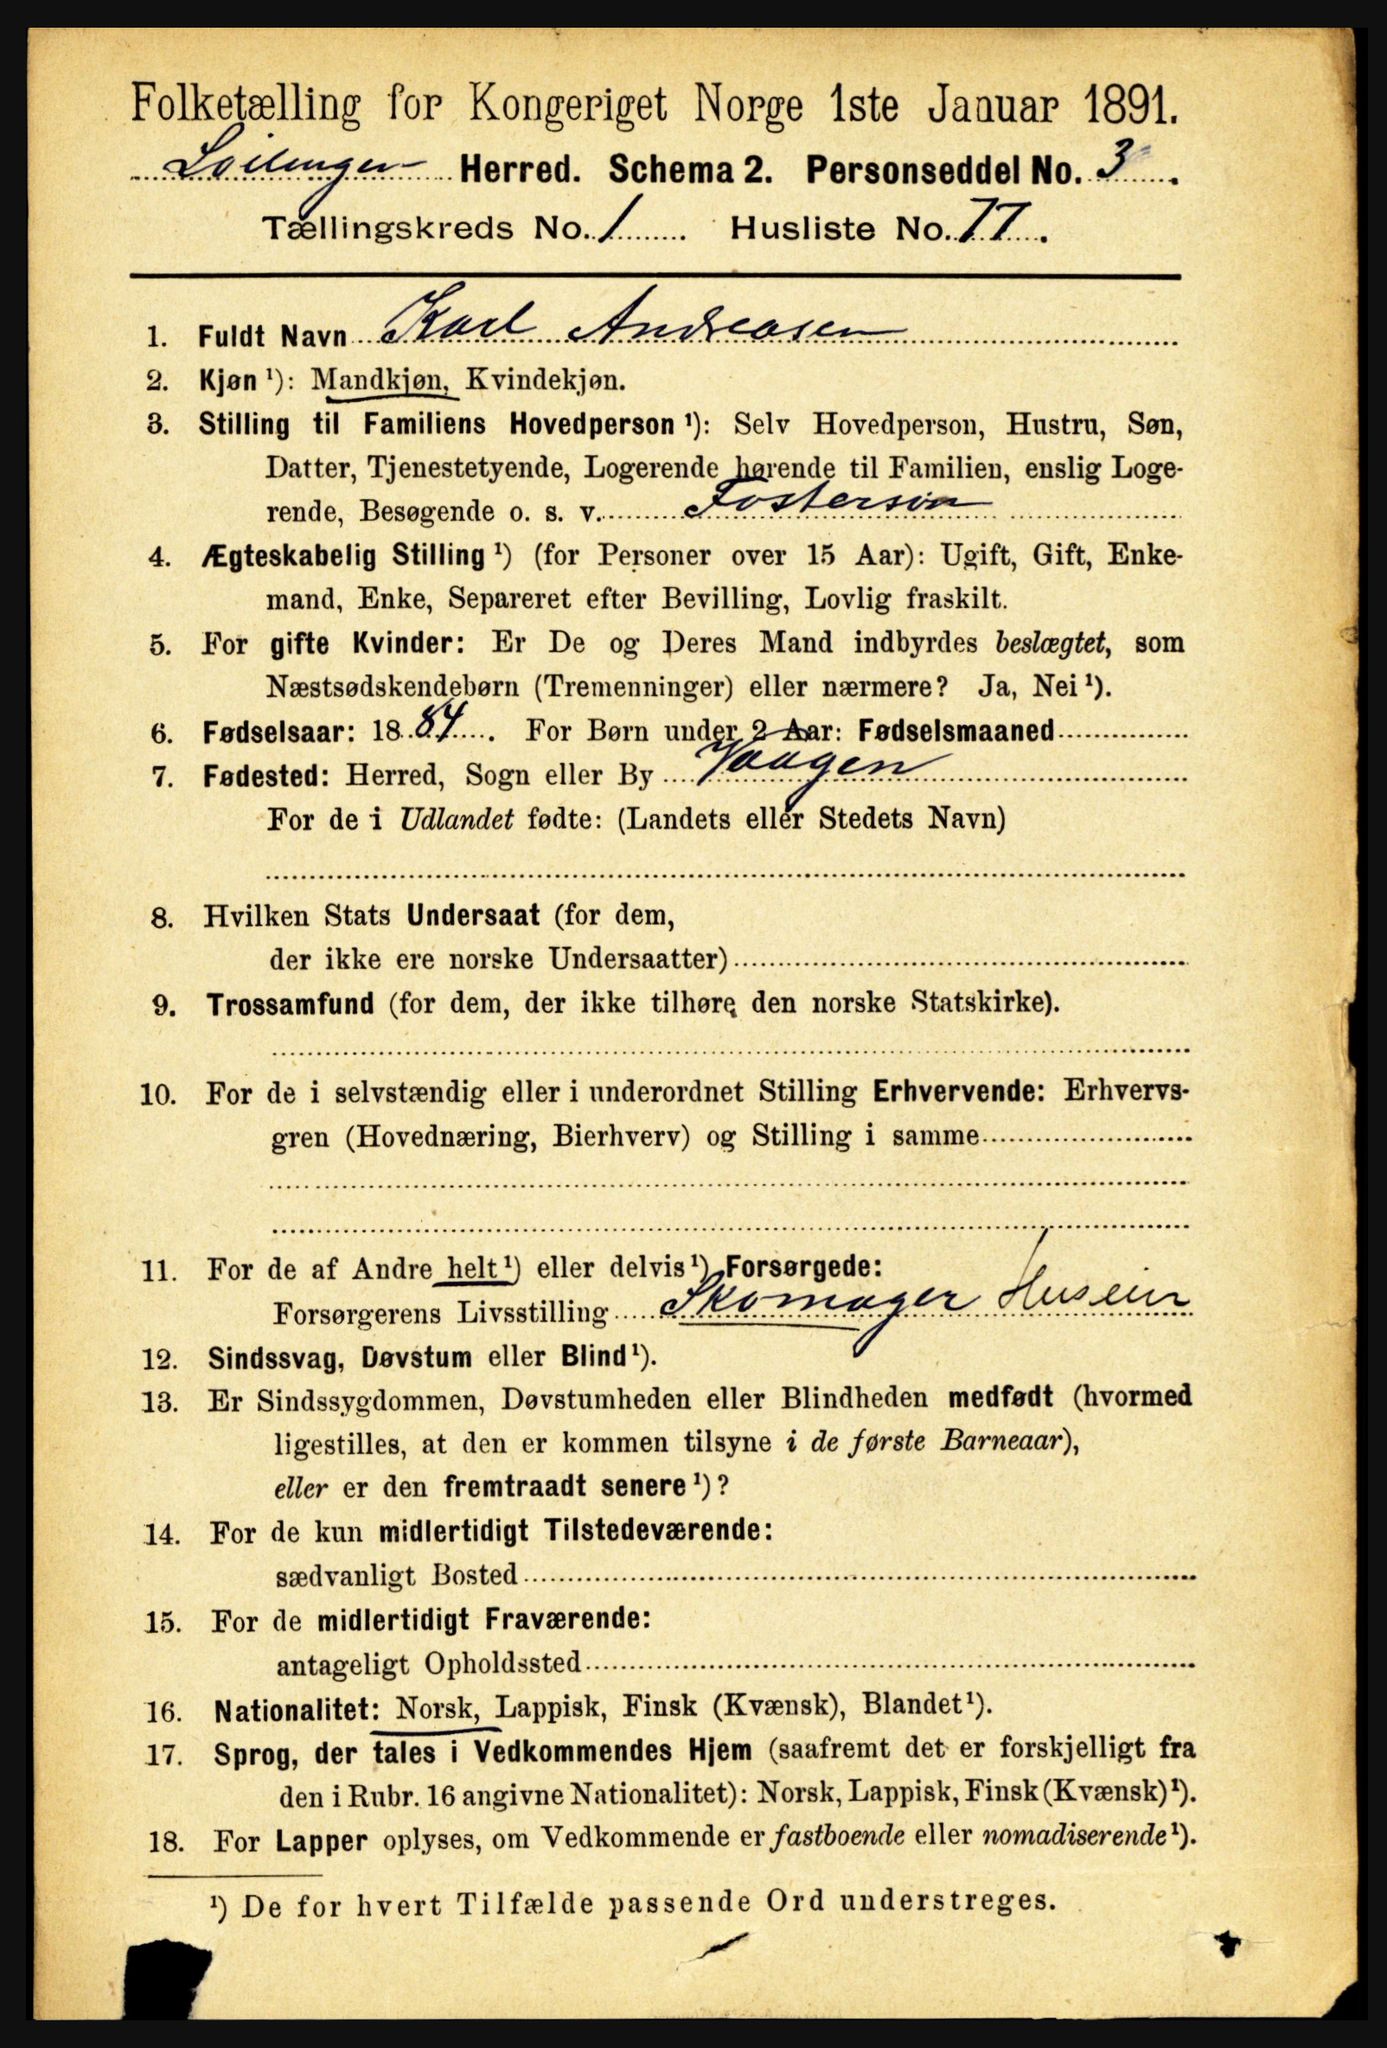 Folketælling for Kongeriget Norge 1ste Januar 1891.
Herred. Schema 2. Personseddel No. 3
Tællingskreds No. 1 Husliste No. 77.
1. Fuldt Navn Karl Andreasen
2. Kjøn ¹): Mandkjøn, Kvindekjøn.
3. Stilling til Familiens Hovedperson ¹): Selv Hovedperson, Hustru, Søn,
Datter, Tjenestetyende, Logerende hørende til Familien, enslig Loge-
rende, Besøgende o. s. v. Fostersøn
4. Ægteskabelig Stilling ¹) (for Personer over 15 Aar): Ugift, Gift, Enke-
mand, Enke, Separeret efter Bevilling, Lovlig fraskilt.
5. For gifte Kvinder: Er De og Deres Mand indbyrdes beslægtet, som
Næstsødskendebørn (Tremenninger) eller nærmere? Ja, Nei ¹).
6. Fødselsaar: 1884. For Børn under 2 Aar: Fødselsmaaned
7. Fødested: Herred, Sogn eller By Vaagen
For de i Udlandet fødte: (Landets eller Stedets Navn)
8. Hvilken Stats Undersaat (for dem,
der ikke ere norske Undersaatter)
9. Trossamfund (for dem, der ikke tilhøre den norske Statskirke).
10. For de i selvstændig eller i underordnet Stilling Erhvervende: Erhvervs-
gren (Hovednæring, Bierhverv) og Stilling i samme
11. For de af Andre helt ¹) eller delvis ¹) Forsørgede:
Forsørgerens Livsstilling Skomager
12. Sindssvag, Døvstum eller Blind ¹).
13. Er Sindssygdommen, Døvstumheden eller Blindheden medfødt (hvormed
ligestilles, at den er kommen tilsyne i de første Barneaar),
eller er den fremtraadt senere ¹)?
14. For de kun midlertidigt Tilstedeværende:
sædvanligt Bosted
15. For de midlertidigt Fraværende:
antageligt Opholdssted
16. Nationalitet: Norsk, Lappisk, Finsk (Kvænsk), Blandet ¹).
17. Sprog, der tales i Vedkommendes Hjem (saafremt det er forskjelligt fra
den i Rubr. 16 angivne Nationalitet): Norsk, Lappisk, Finsk (Kvænsk) ¹).
18. For Lapper oplyses, om Vedkommende er fastboende eller nomadiserende ¹).
¹) De for hvert Tilfælde passende Ord understreges.